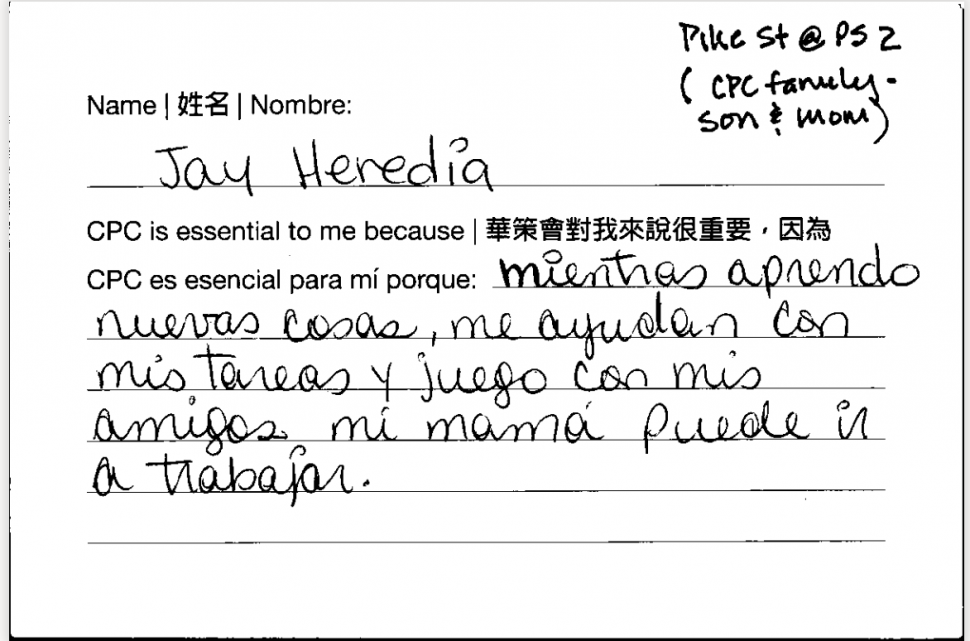 Pike St @ PS 2
( CPC family -
son & mom )
Name | 姓名 | Nombre:
Jay Heredia
CPC is essential to me because | 華策會對我來說很重要，因為
CPC es esencial para mí porque: mientras aprendo
nuevas cosas, me ayudan con
mis tareas y juego con mis
amigos mi mamá puede ir
a trabajar.